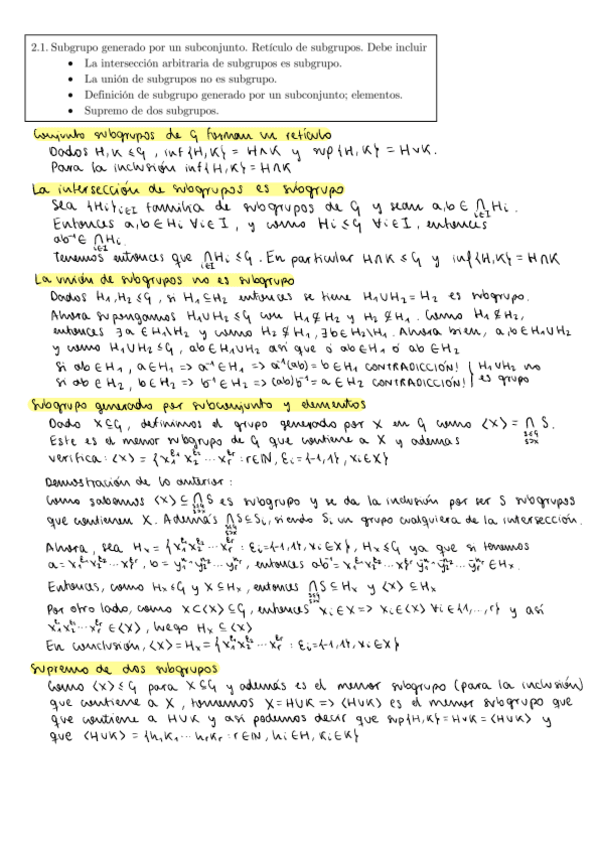 2.1. Subgrupo generado por un subconjunto. Retículo de subgrupos. Debe incluir
• La intersección arbitraria de subgrupos es subgrupo.
• La unión de subgrupos no es subgrupo.
• Definición de subgrupo generado por un subconjunto; elementos.
• Supremo de dos subgrupos.
Conjunto subgrupos de G forman un retículo
Dados H,K ≤ G, inf{H,K} = H∧K y sup{H,K} = H∨K.
Para la inclusión inf{H,K} = H∩K
La intersección de subgrupos es subgrupo
Sea {Hi}i∈I familia de subgrupos de G y sean a,b ∈ ⋂i∈I Hi.
Entonces a,b ∈ Hi ∀i∈I, y como Hi ≤ G ∀i∈I, entonces
ab⁻¹ ∈ ⋂i∈I Hi
Tenemos entonces que ⋂i∈I Hi ≤ G. En particular H∩K ≤ G y inf{H,K} = H∩K
La unión de subgrupos no es subgrupo
Dados H₁,H₂ ≤ G, si H₁ ⊆ H₂ entonces se tiene H₁∪H₂ = H₂ es subgrupo.
Ahora supongamos H₁∪H₂ ≤ G con H₁ ⊈ H₂ y H₂ ⊈ H₁. Como H₁ ⊈ H₂,
entonces ∃a ∈ H₁\H₂ y como H₂ ⊈ H₁, ∃b ∈ H₂\H₁. Ahora bien, a,b ∈ H₁∪H₂
y como H₁∪H₂ ≤ G, ab ∈ H₁∪H₂ así que ó ab ∈ H₁ ó ab ∈ H₂
Si ab ∈ H₁, a ∈ H₁ => a⁻¹ ∈ H₁ => a⁻¹(ab) = b ∈ H₁ CONTRADICCIÓN! } H₁∪H₂ no
Si ab ∈ H₂, b ∈ H₂ => b⁻¹ ∈ H₂ => (ab)b⁻¹ = a ∈ H₂ CONTRADICCIÓN! } es grupo
Subgrupo generado por subconjunto y elementos
Dado X ⊆ G, definimos el grupo generado por X en G como ⟨X⟩ = ⋂S≤G S⊇X S.
Este es el menor subgrupo de G que contiene a X y además
verifica: ⟨X⟩ = {x₁^ε₁ x₂^ε₂ ··· xr^εr : r∈ℕ, εi={-1,1}, xi∈X}
Demostración de lo anterior:
Como sabemos ⟨X⟩ ⊆ ⋂S≤G S⊇X S es subgrupo y se da la inclusión por ser S subgrupos
que contienen X. Además ⋂S≤G S⊇X S ⊆ Si, siendo Si un grupo cualquiera de la intersección.
Ahora, sea Hx = {x₁^ε₁ x₂^ε₂ ··· xr^εr : εi={-1,1}, xi∈X}, Hx ≤ G ya que si tenemos
a = x₁^ε₁ x₂^ε₂ ··· xr^εr, b = y₁^n₁ y₂^n₂ ··· yr^nr, entonces ab⁻¹ = x₁^ε₁ x₂^ε₂ ··· xr^εr yr^-nr ··· y₁^-n₁ ∈ Hx.
Entonces, como Hx ≤ G y X ⊆ Hx, entonces ⋂S≤G S⊇X S ⊆ Hx y ⟨X⟩ ⊆ Hx
Por otro lado, como X ⊂ ⟨X⟩ ⊆ G, entonces xi∈X => xi ∈ ⟨X⟩ ∀i∈{1,...,r} y así
x₁^ε₁ x₂^ε₂ ··· xr^εr ∈ ⟨X⟩, luego Hx ⊆ ⟨X⟩
En conclusión, ⟨X⟩ = Hx = {x₁^ε₁ x₂^ε₂ ··· xr^εr : εi={-1,1}, xi∈X}
Supremo de dos subgrupos
Como ⟨X⟩ ≤ G para X ⊆ G y además es el menor subgrupo (para la inclusión)
que contiene a X, tomemos X = H∪K => ⟨H∪K⟩ es el menor subgrupo que
que contiene a H∪K y así podemos decir que sup{H,K} = H∨K = ⟨H∪K⟩ y
que ⟨H∪K⟩ = {h₁K₁ ··· hrKr : r∈ℕ, hi∈H, Ki∈K}